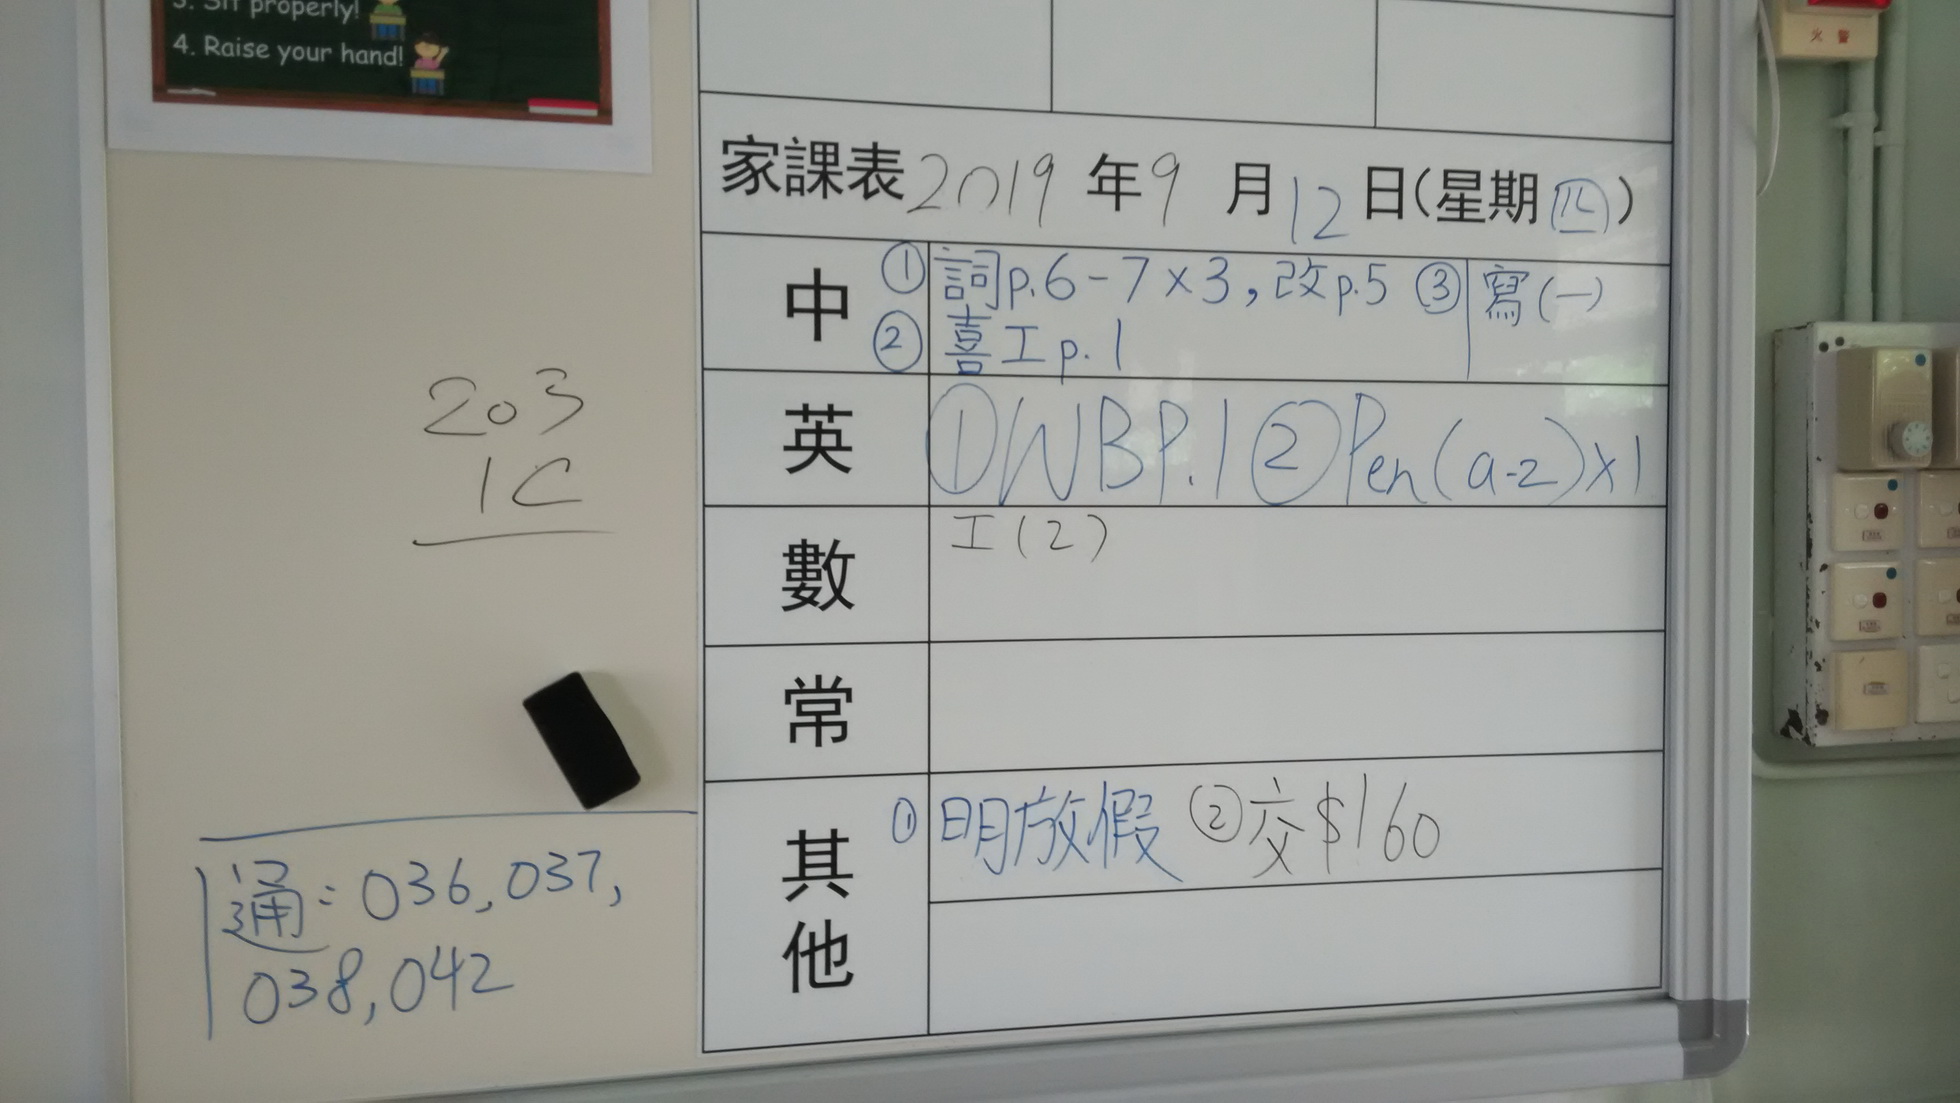 3. Sit properly!
4. Raise your hand!
火警
家課表 2019 年 9 月 12 日(星期四)
中 ① 詞p.6-7×3,改p.5 ③ 寫(一)
② 喜工p.1
英 ① WBP.1 ② Pen(a-z)×1
數 工(2)
常
其他 ① 明放假 ② 交$160
203
1C
通:036,037,
038,042